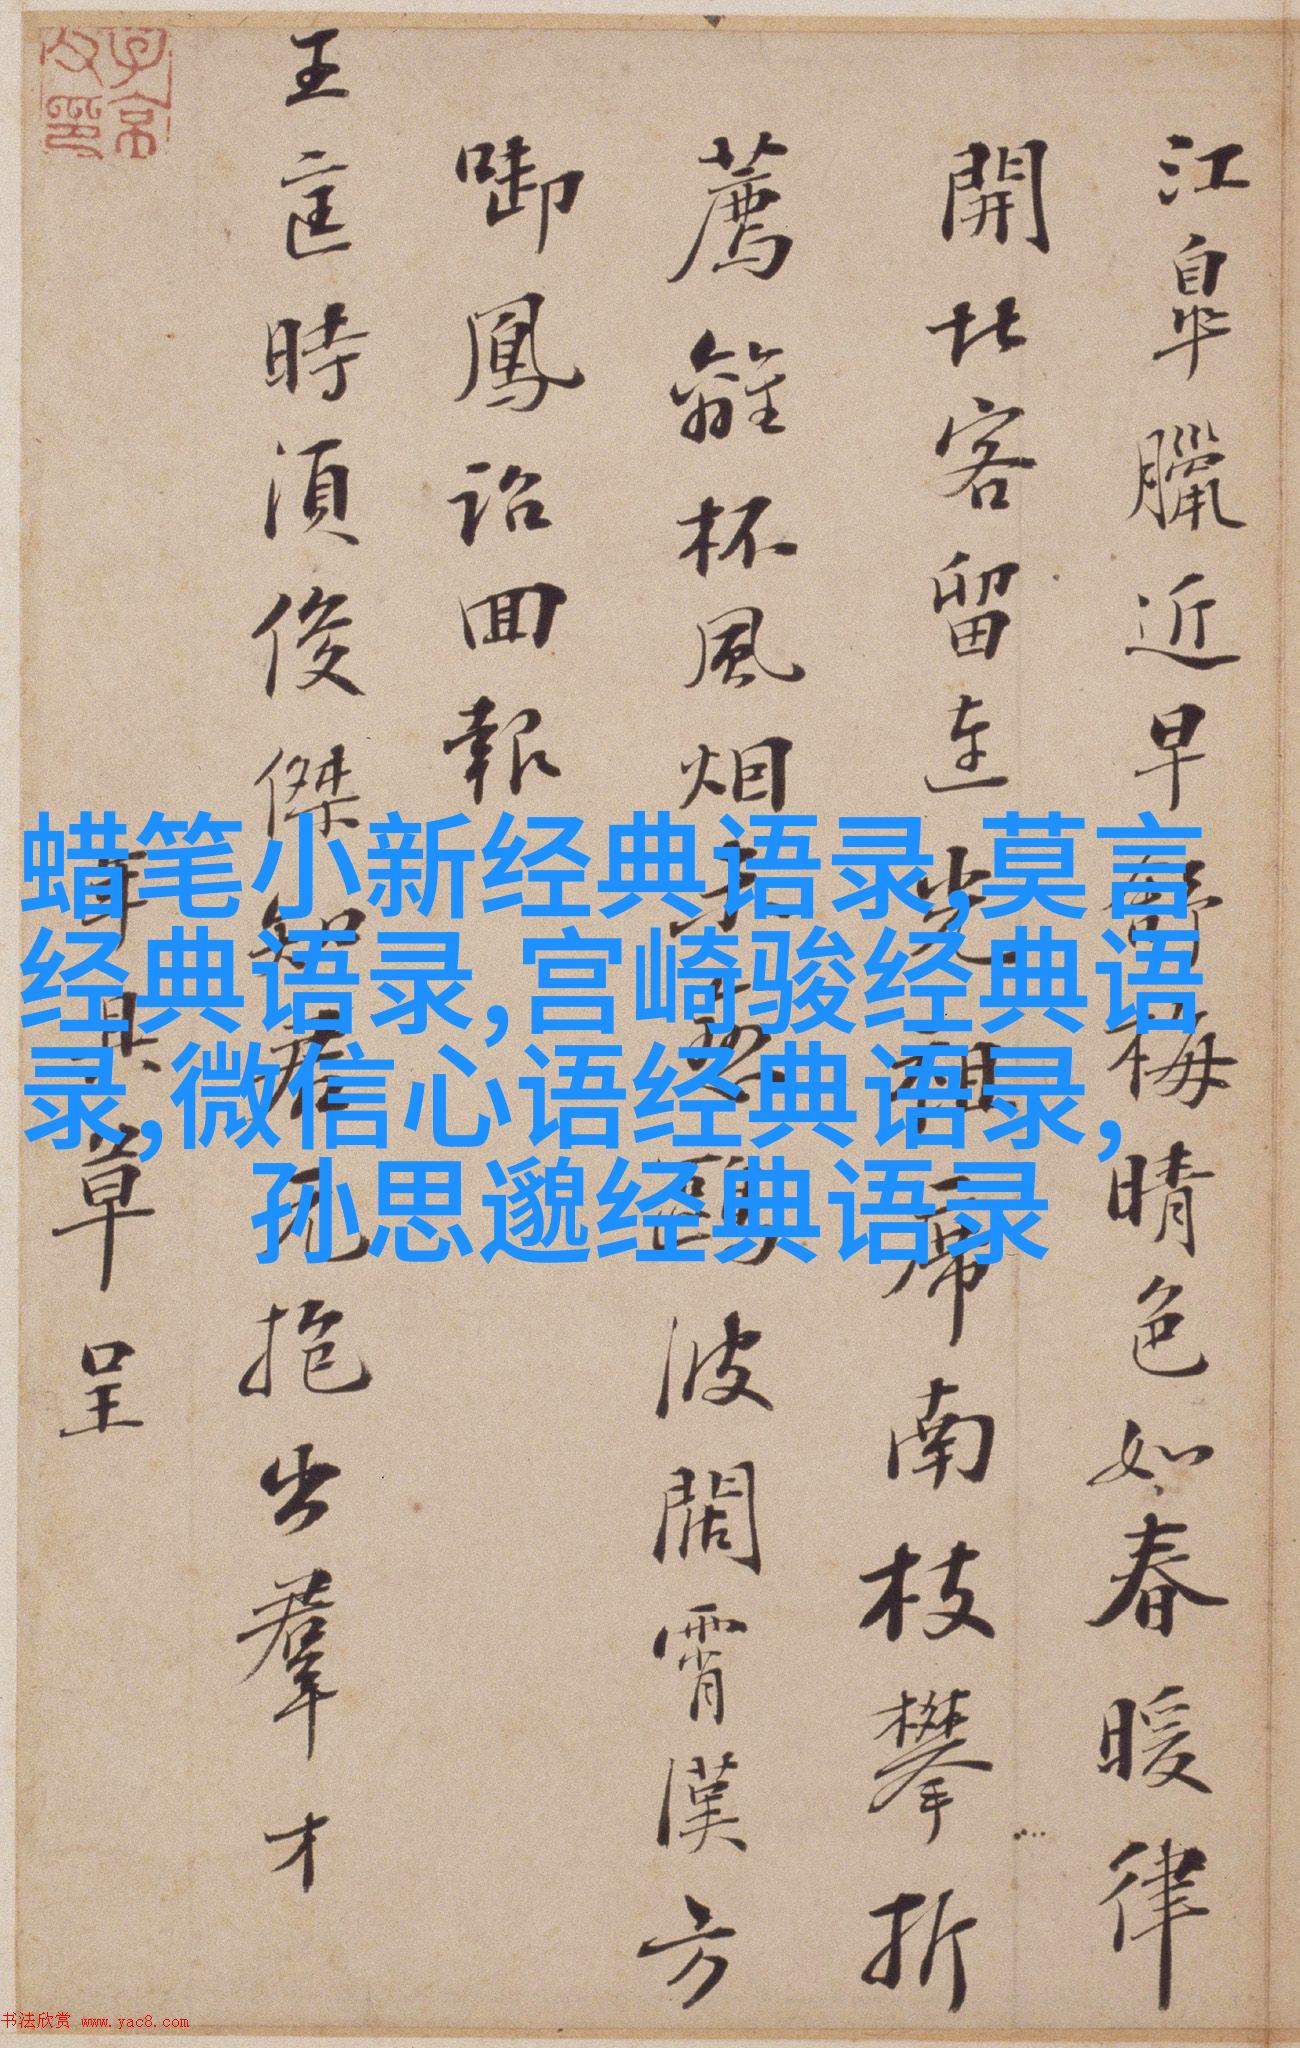 江皐臘近早舒梅晴色如春暖律
開北客留連光祖席南枝攀折
薦離杯風烟波闊霄漢方
啣鳳詔囬報
王匡時須俊傑知君元抱出羣才
草呈
子京父印
蜡笔小新经典语录,莫言
经典语录,宫崎骏经典语
录,微信心语经典语录,
孙思邈经典语录
书法欣赏 www.yac8.com